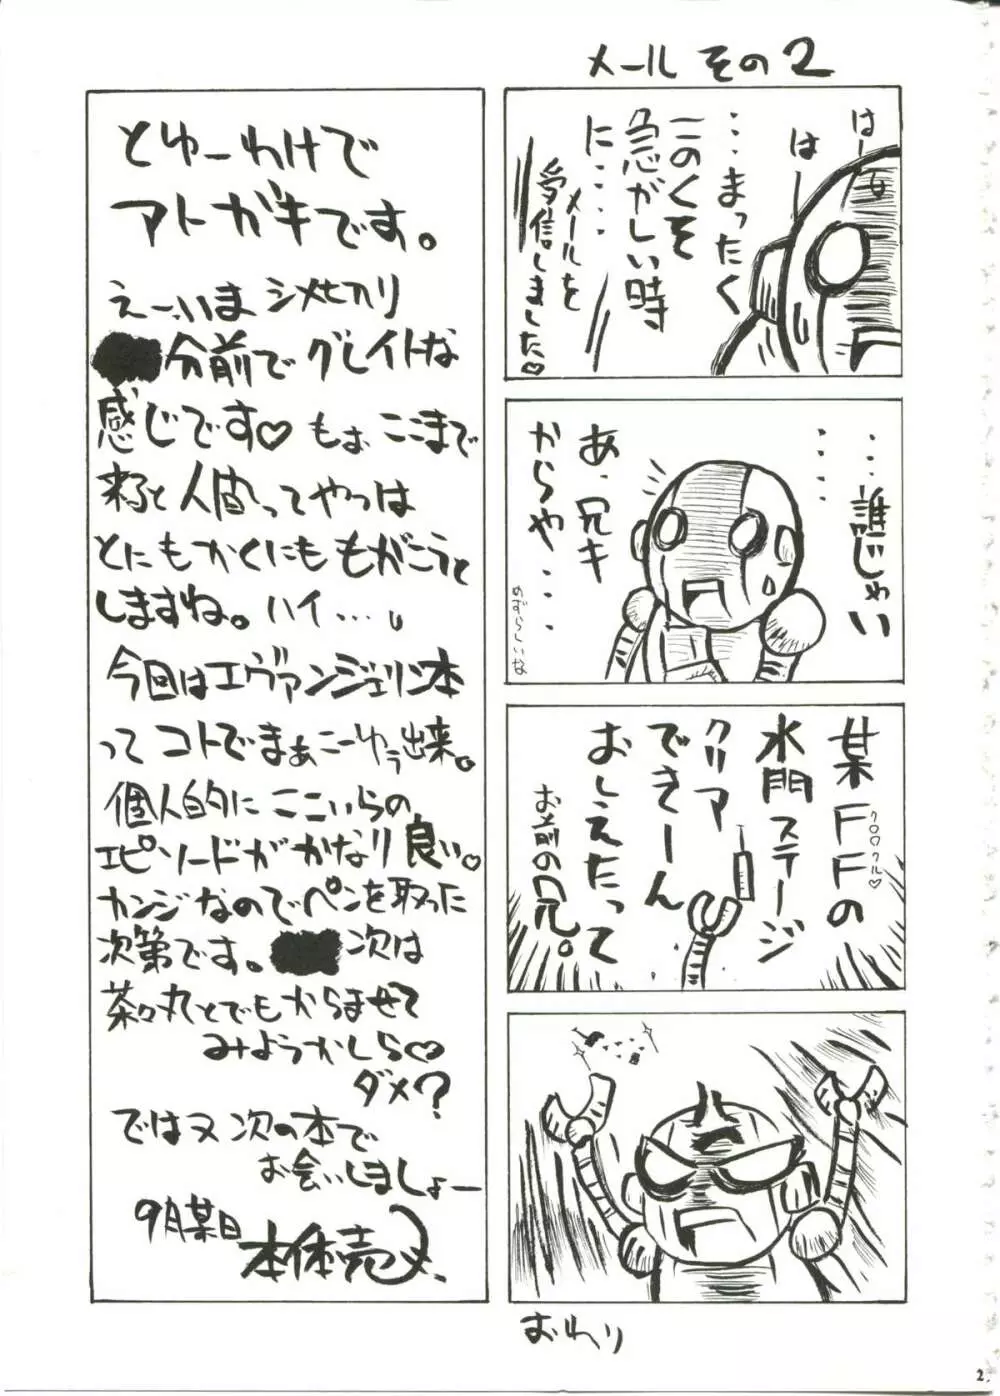 メール その2
はー
はー
…まったく
このくそ
急がしい時
に‥‥
メールを
受信しました♡
‥‥誰じゃい
‥‥
あ、兄キ
からや‥‥
めずらしいな
某FFの
クロロクル♡
水門ステージ
クリア
できーん
おしえたって
お前の兄。
おわり
とゆーわけで
アトガキです。
えー、いま シメキリ
分前で グレイトな
感じです♡ もぉ ここまで
来ると 人間ってやつは
とにもかくにも もがこうと
しますね。 ハイ…。
今回はエヴァンジェリン本
って コトで まぁこーゆう出来。
個人的に ここいらの
エピソードが かなり 良い。
カンジなので ペンを取った
次第です。 次は
茶々丸とでもからませて
みようかしら♡
ダメ?
ではヌ 次の本で
お会いしましょー
9月某日
本体売
2